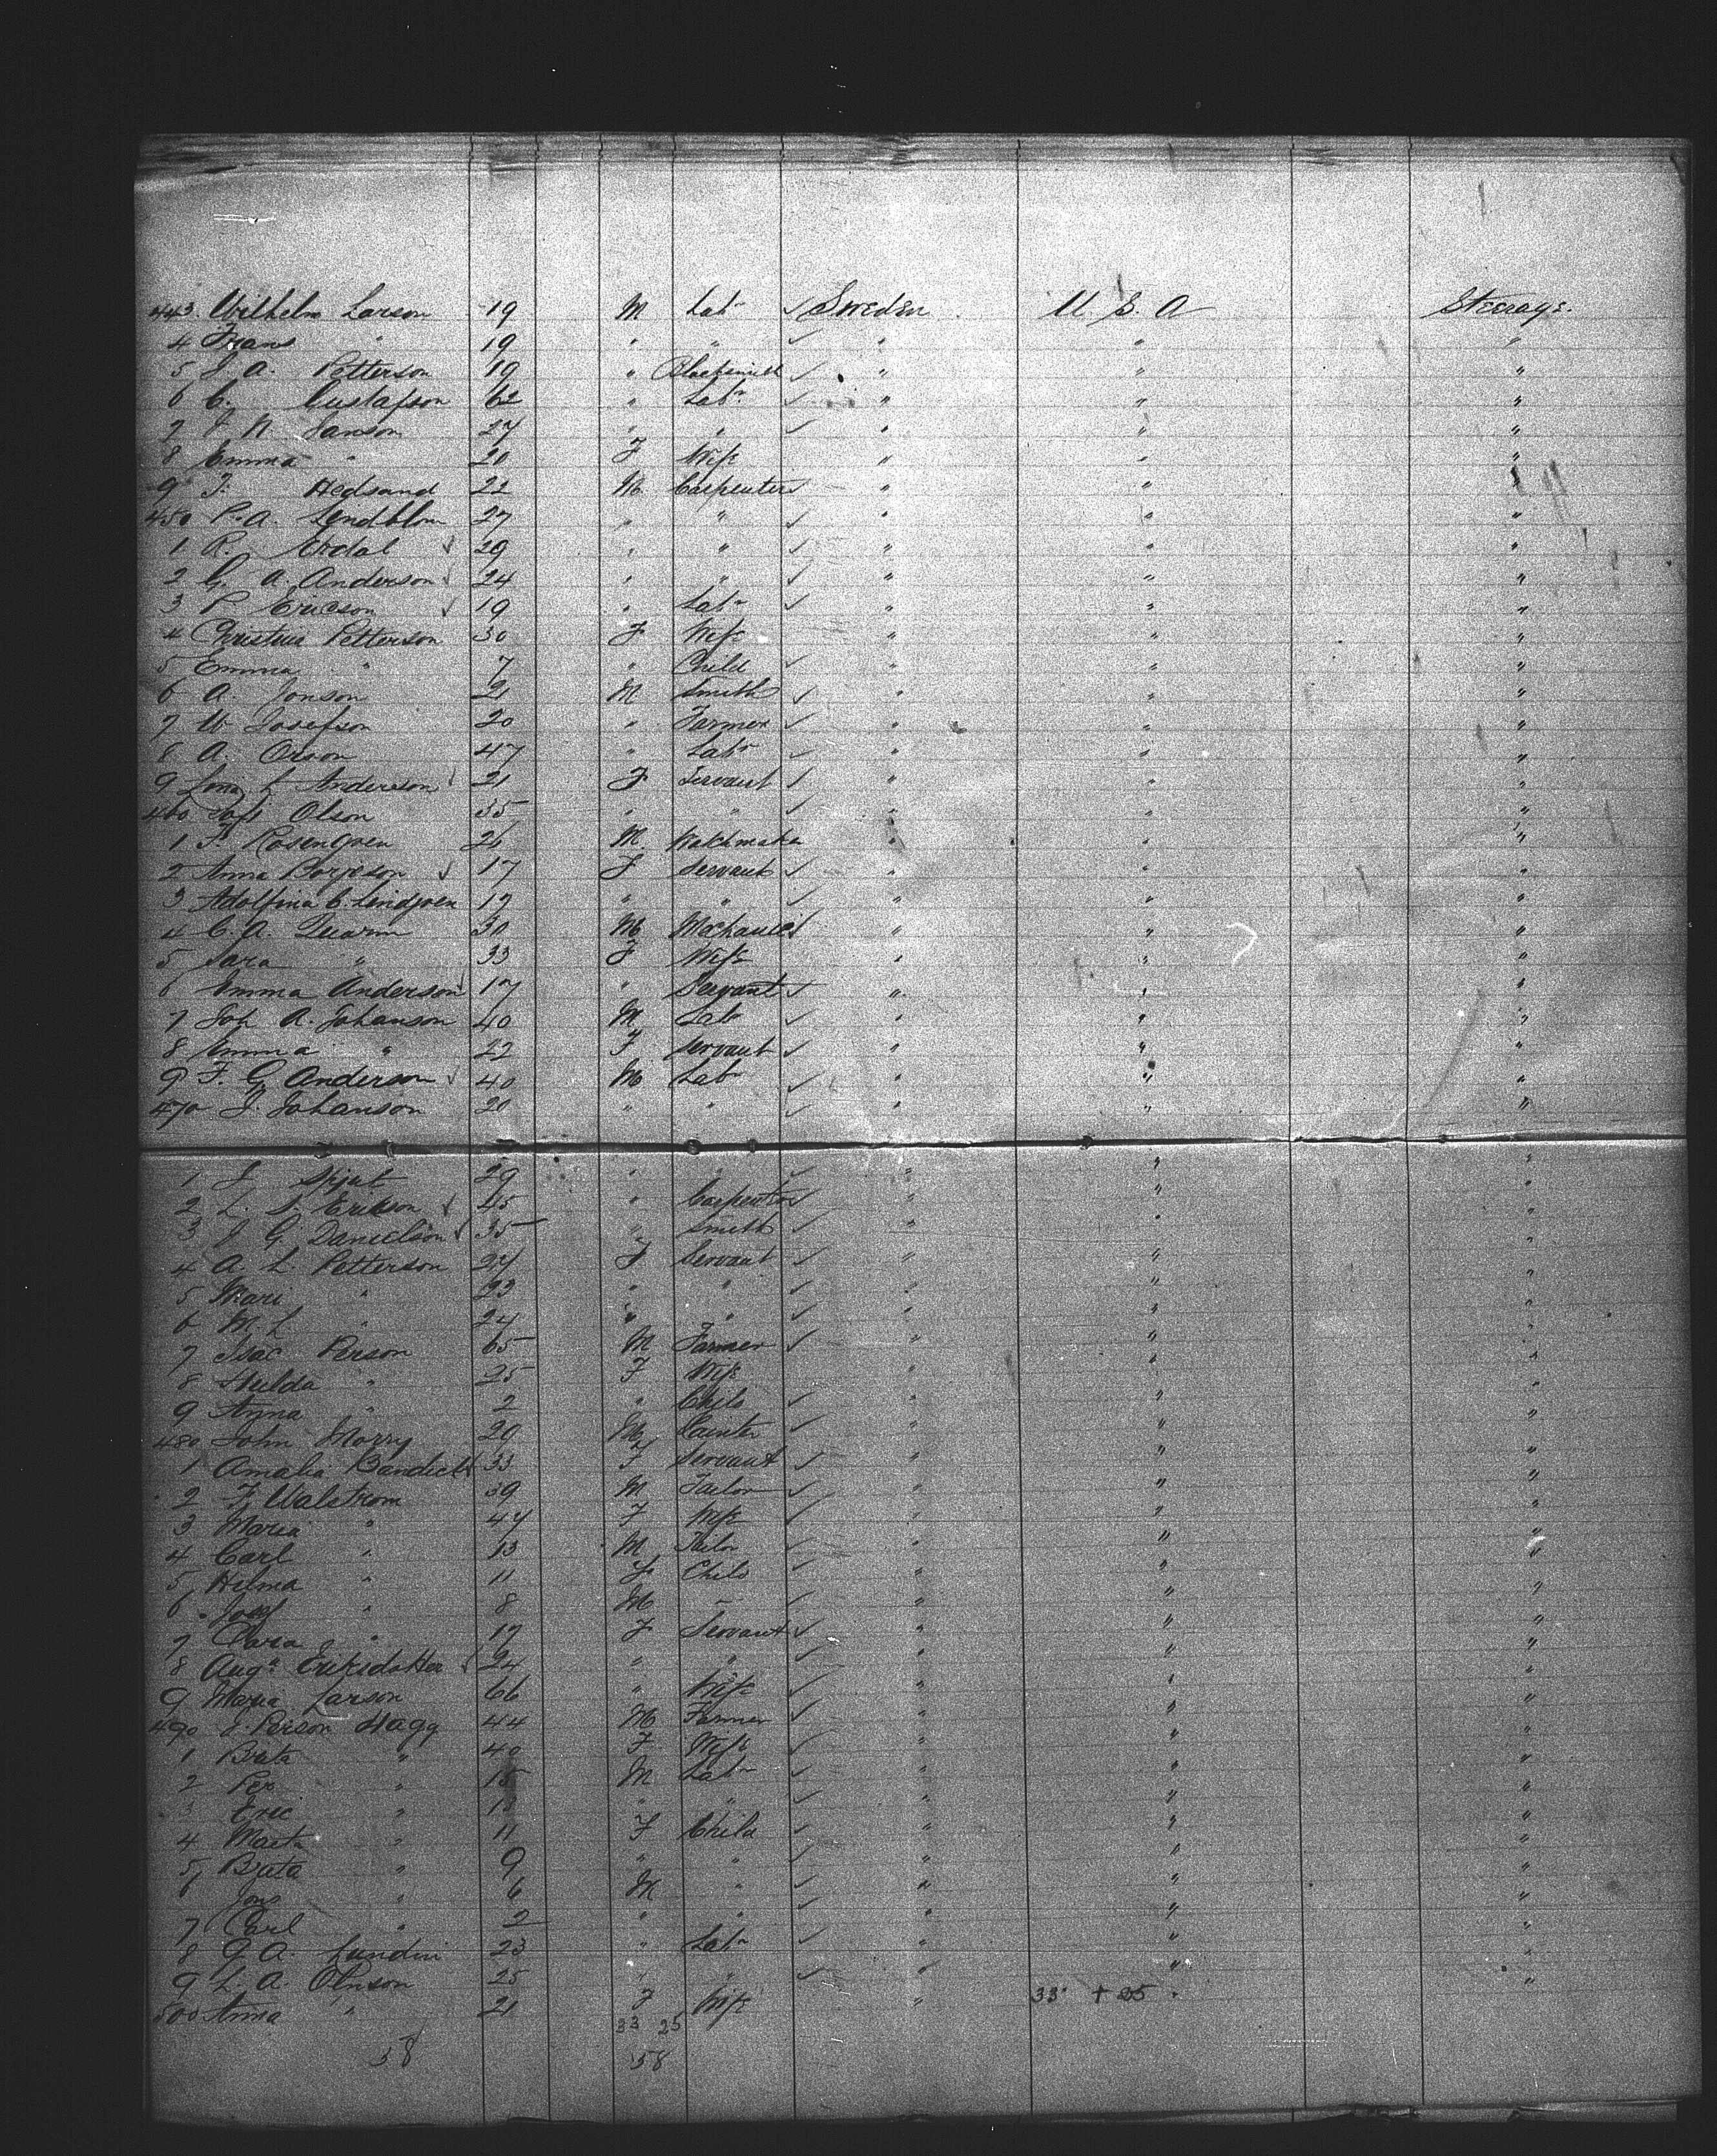 443. Wilhelm Larson 19 M Labr ✓ Sweden U. S. A Steerage.
4 Frans " 19 " " ✓ " " "
5 J A. Petterson 19 " Blacksmith ✓ " " "
6 C. Gustafson 62 " Labr ✓ " " "
7 J N. Janson 27 " " ✓ " " "
8 Emma " 20 F Wife " " "
9 F. Hedsand 22 M Carpenter ✓ " " "
450 P. A. Lendblom 27 " " ✓ " " "
1 R. ✓ 29 " " ✓ " " "
2 G. A. Anderson ✓ 24 " " ✓ " " "
3 P. Ericson ✓ 19 " Labr ✓ " " "
4 Christina Petterson 30 F Wife " " "
5 Emma " 7 " Child ✓ " " "
6 A. Jonson 21 M. Smith ✓ " " "
7 W Josefson 20 " Farmer ✓ " " "
8 A. Orson 47 " Labr ✓ " " "
9 L Anderson ✓ 21 F Servant ✓ " " "
460 Olson 35 " " ✓ " " "
1 F. Rosengren 26 M. Watchmaker " " "
2 Anna Borjeson ✓ 17 F Servant ✓ " " "
3 Adolfina C. Lindgren 17 " " ✓ " " "
4 C. A. 30 M Mechanic ✓ " " "
5 Sara " 33 F Wife " " "
6 Emma Anderson ✓ 17 " Servant ✓ " " "
7 Joh A. Johanson 40 M Labr ✓ " " "
8 Emma " 22 F Servant ✓ " " "
9 F. G. Anderson ✓ 40 M Labr ✓ " " "
470 J. Johanson 20 " " ✓ " " "
1 J 29 " " ✓ " " "
2 L. S. Erikson ✓ 45 " Carpenter ✓ " " "
3 J G. Danielson ✓ 35 " Smith ✓ " " "
4 A. L. Petterson 27 F Servant ✓ " " "
5 Mari " 23 " " ✓ " " "
6 M L " 24 " " ✓ " " "
7 Isac Person 65 M Farmer ✓ " " "
8 Hulda " 25 F Wife " " "
9 Anna " 2 " Child ✓ " " "
480 John Morry 20 M Painter ✓ " " "
1 Amalia 33 F Servant ✓ " " "
2 F. Walstrom 39 M Tailor ✓ " " "
3 Maria " 47 F Wife ✓ " " "
4 Carl " 13 M Tailor ✓ " " "
5 Hilma " 11 F Child ✓ " " "
6 Josef " 8 M " ✓ " " "
7 Clara " 17 F Servant ✓ " " "
8 Auga Eriksdotter ✓ 24 " " ✓ " " "
9 Maria Larson 66 " Wife ✓ " " "
490 J. Person Hagg 44 M Farmer ✓ " " "
1 Brita " 40 F Wife ✓ " " "
2 Per " 15 M Labr ✓ " " "
3 Eric " " " ✓ " " "
4 Marta " 11 F Child ✓ " " "
5 Brita " 9 " " ✓ " " "
6 Jons " 6 M " ✓ " " "
7 Carl " 2 " " ✓ " " "
8 G. A. Lundin 23 " Labr ✓ " " "
9 L. A. Olnson 25 " " ✓ " " "
500 Anna " 21 F Wife " 33 + 25
33 25
58 58